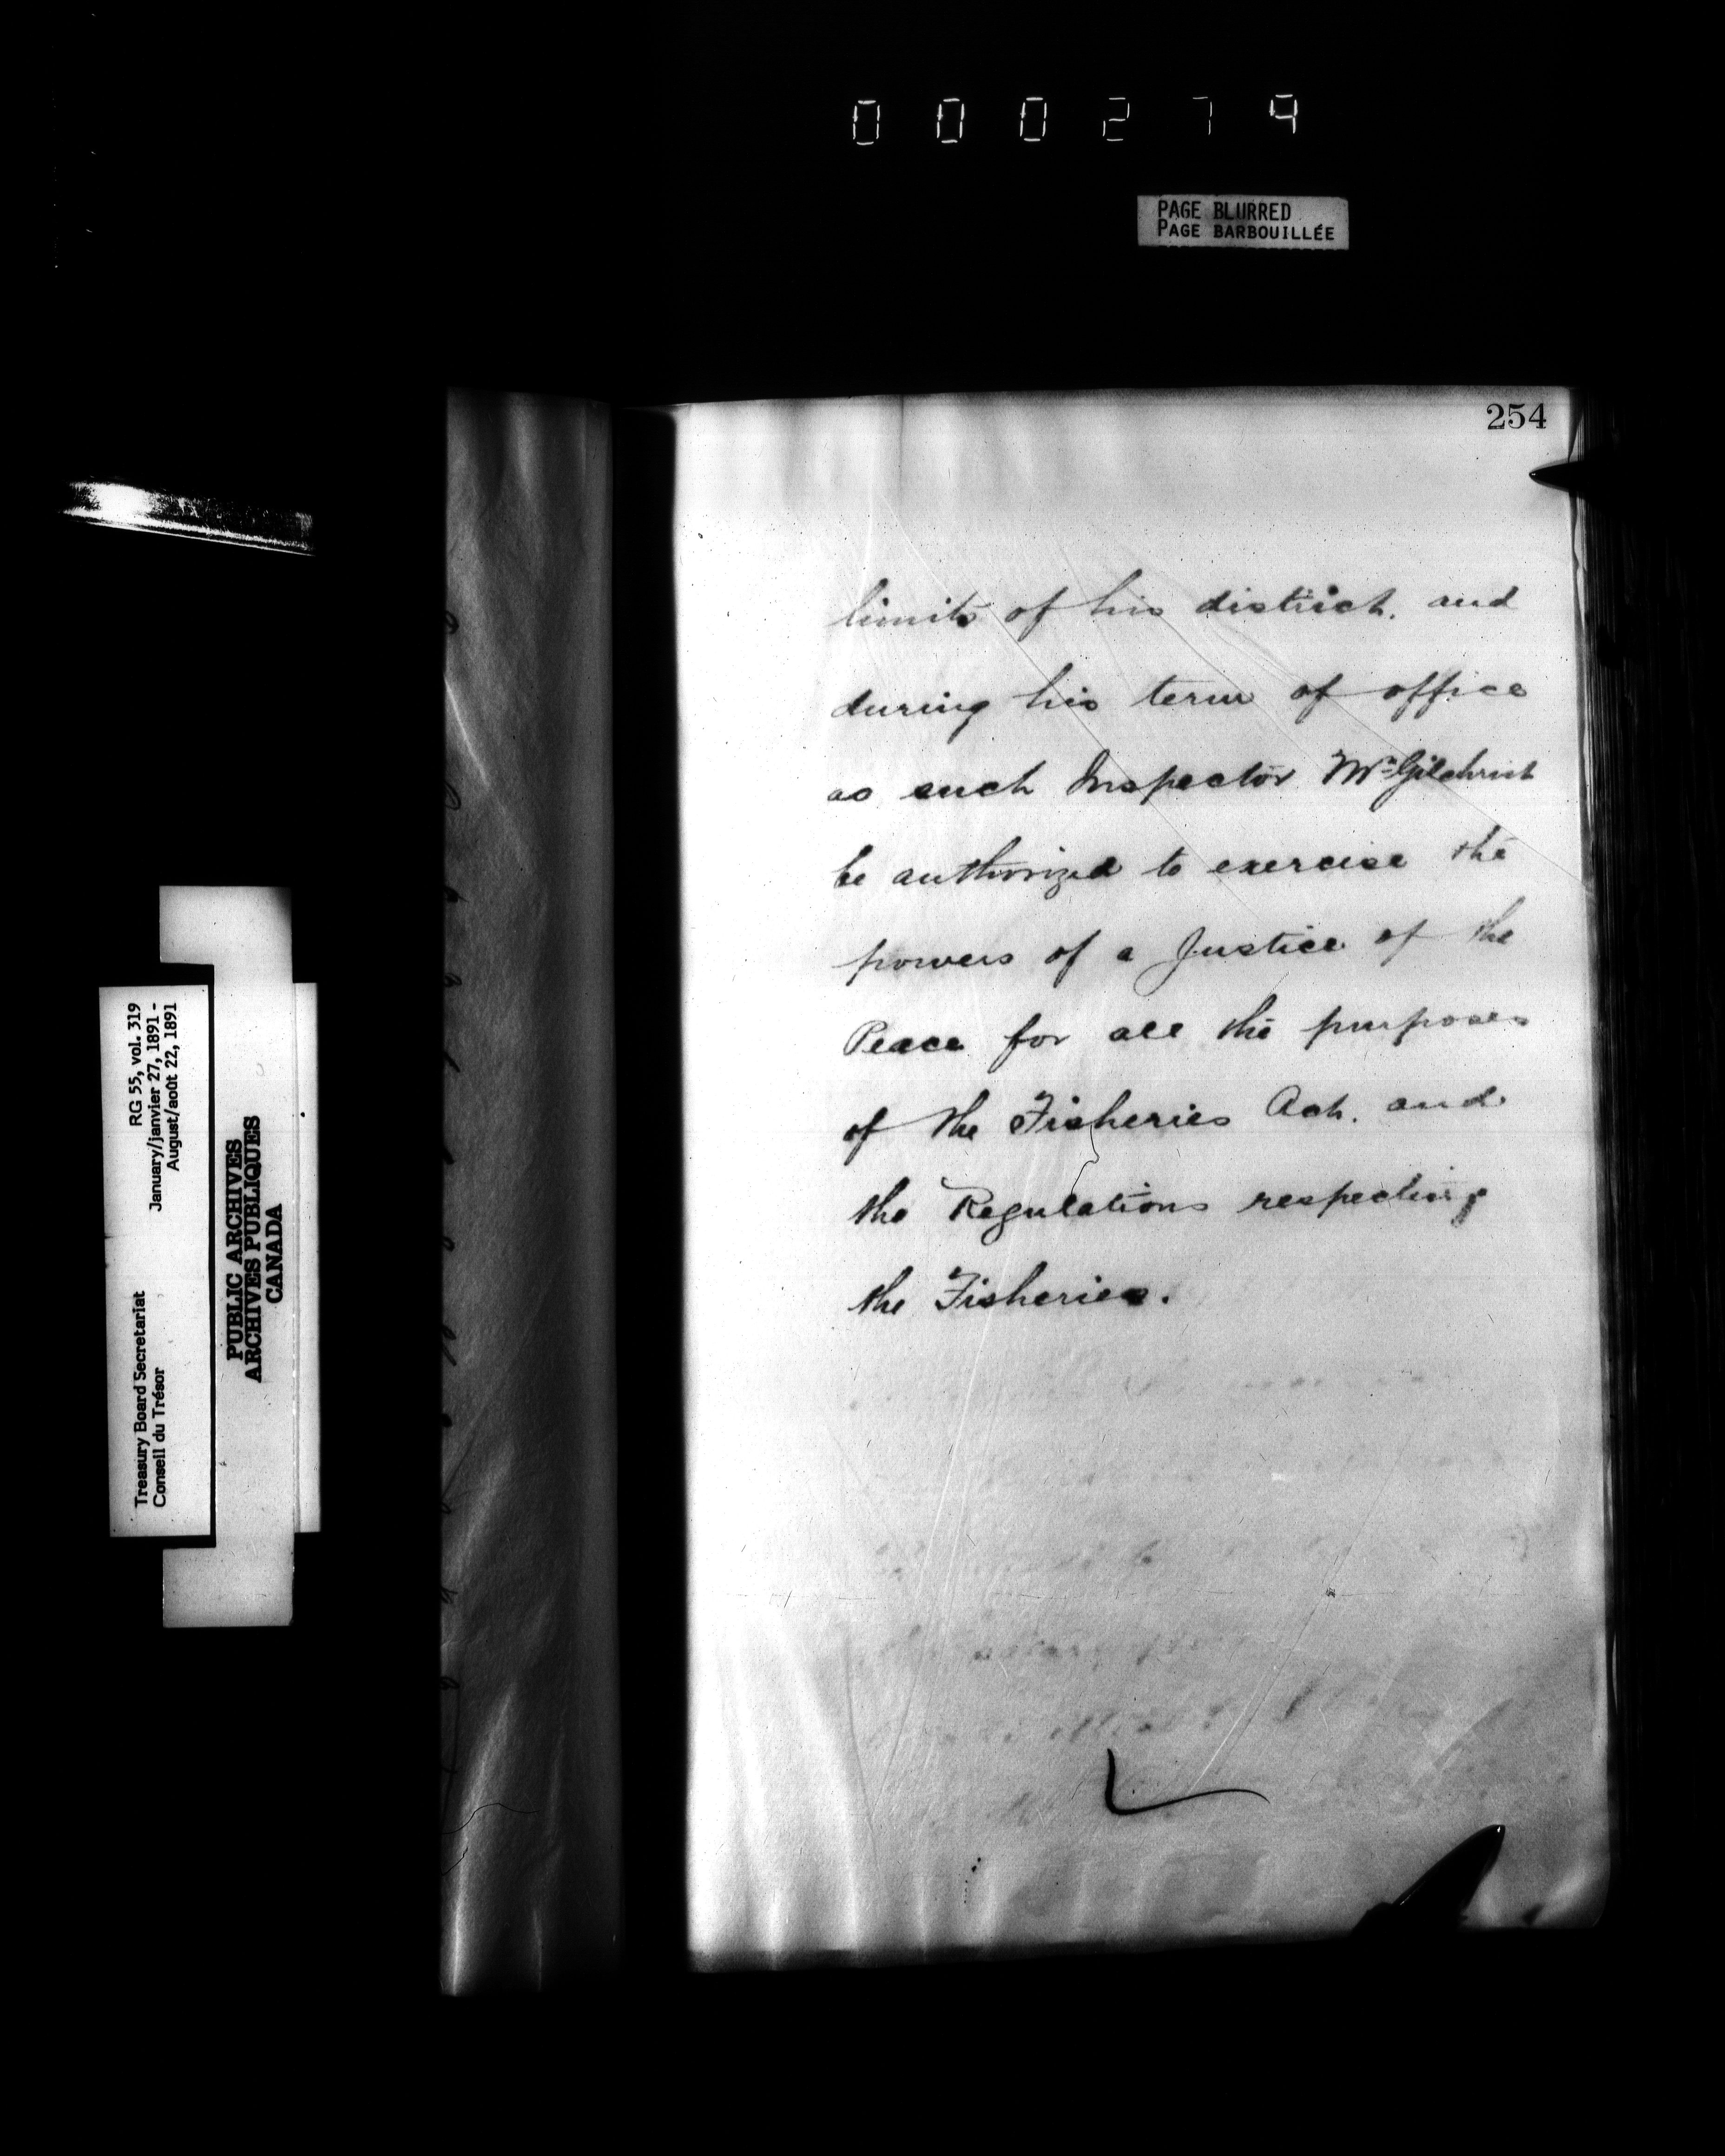 000279
PAGE BLURRED
PAGE BARBOUILLÉE
254
limits of his district. and
during his term of office
as such Inspector Mr Gilchrist
be authorized to exercise the
powers of a Justice of the
Peace for all the purposes
of the Fisheries Act. and
the Regulations respecting
the Fisheries.
Treasury Board Secretariat RG 55, vol. 319
Conseil du Trésor January/janvier 27, 1891 -
August/août 22, 1891
PUBLIC ARCHIVES
ARCHIVES PUBLIQUES
CANADA